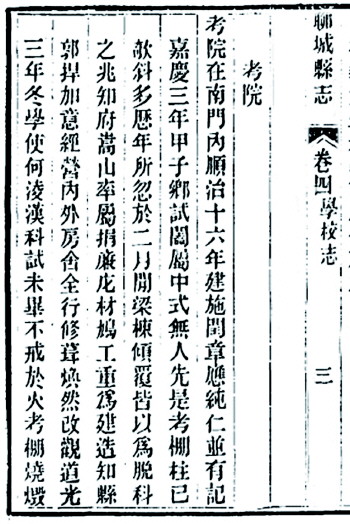 聊城縣志 卷四 學校志 三
考院
考院在南門內順治十六年建施閏章應純仁並有記
嘉慶三年甲子鄉試闔屬中式無人先是考棚柱已
欹斜多歷年所忽於二月間梁棟傾覆皆以為脫科
之兆知府嵩山率屬捐廉庀材鳩工重為建造知縣
郭捍加意經營內外房舍全行修葺煥然改觀道光
三年冬學使何淩漢科試未畢不戒於火考棚燒燬